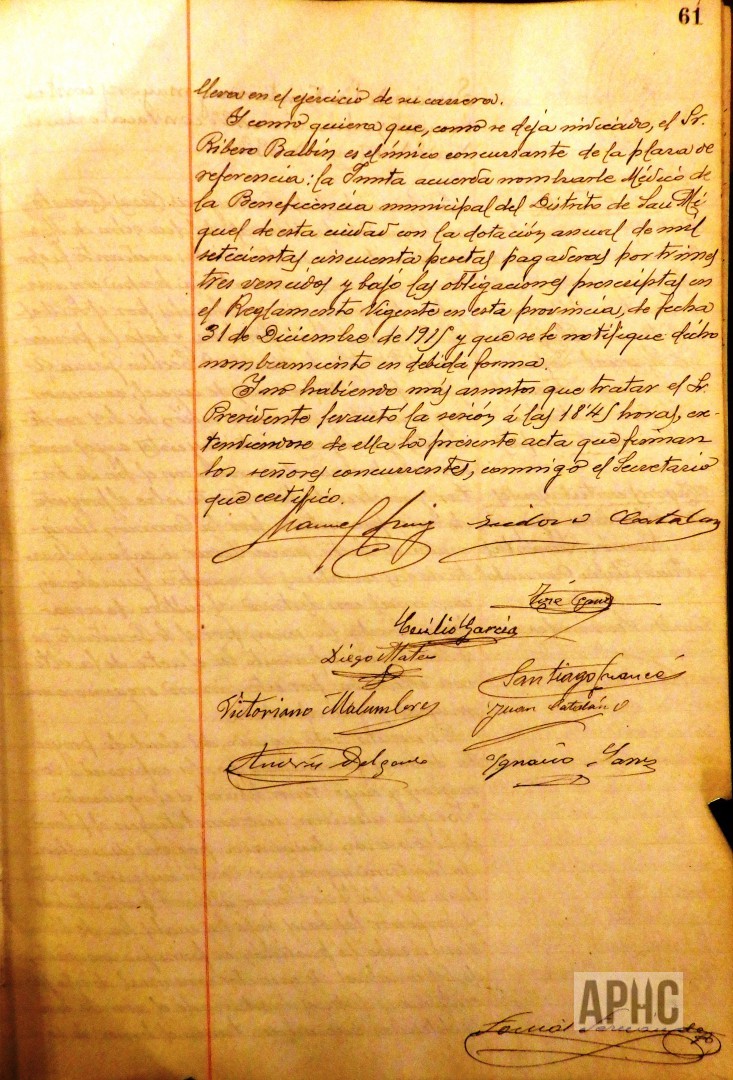 61
lleva en el ejercicio de su carrera.
Y como quiera que, como se deja indicado, el Sr.
Ribero Balbín es el único concursante de la plaza de
referencia: la Junta acuerda nombrarle Médico de
la Beneficencia municipal del Distrito de San Mi
guel de esta ciudad con la dotación anual de mil
setecientas cincuenta pesetas pagaderas por trimes
tres vencidos y bajo las obligaciones prescriptas en
el Reglamento Vigente en esta provincia, de fecha
31 de Diciembre de 1915 y que se le notifique dicho
nombramiento en debida forma.
Y no habiendo más asuntos que tratar el Sr.
Presidente levantó la sesión á las 18'45 horas, ex-
tendiéndose de ella la presente acta que firman
los señores concurrentes, conmigo el Secretario
que certifico.
Manuel Isidoro Catalan
José
Cecilio García
Diego Mateo
Santiago Francés
Victoriano Malumbres Juan Catalán
Andrés Delgado Ignacio Sanz
APHC
Tomás Fernández